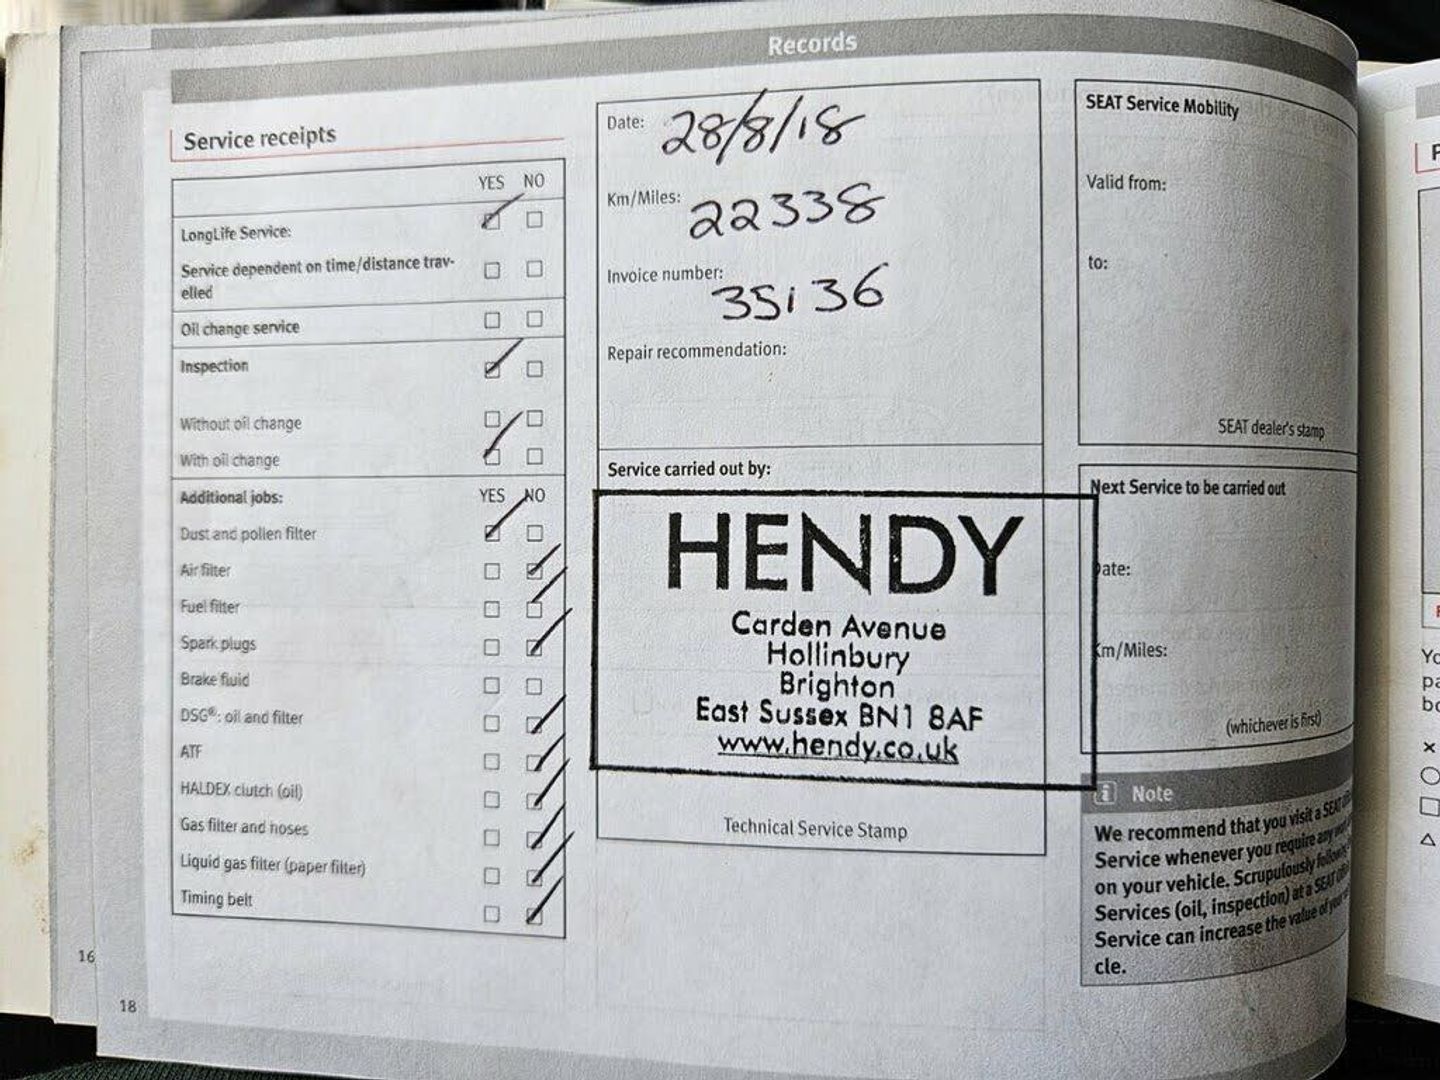 Records
Service receipts
YES NO
LongLife Service:
Service dependent on time/distance trav-
elled
Oil change service
Inspection
Without oil change
With oil change
Additional jobs: YES NO
Dust and pollen filter
Air filter
Fuel filter
Spark plugs
Brake fluid
DSG®: oil and filter
ATF
HALDEX clutch (oil)
Gas filter and hoses
Liquid gas filter (paper filter)
Timing belt
16
18
Date: 28/8/18
Km/Miles: 22338
Invoice number: 35136
Repair recommendation:
Service carried out by:
HENDY
Carden Avenue
Hollinbury
Brighton
East Sussex BN1 8AF
www.hendy.co.uk
Technical Service Stamp
SEAT Service Mobility
Valid from:
to:
SEAT dealer's stamp
Next Service to be carried out
Date:
Km/Miles:
(whichever is first)
Note
We recommend that you visit a SEAT
Service whenever you require any
on your vehicle. Scrupulously following
Services (oil, inspection) at a SEAT
Service can increase the value of your
cle.